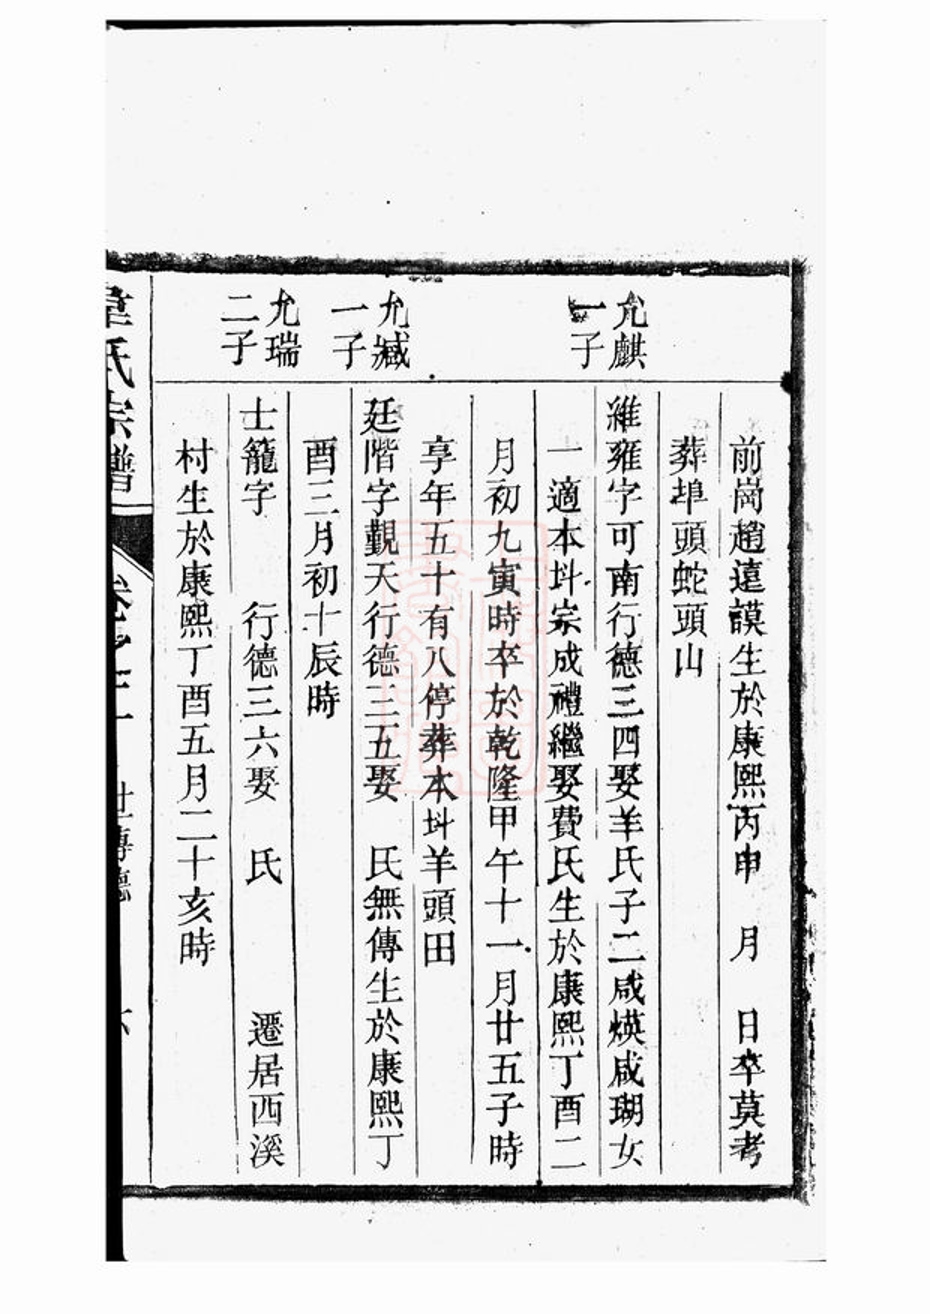 前崗趙遠謨生於康熙丙申　月　日卒莫考
葬埠頭蛇頭山
允麒
一子
維雍字可南行德三四娶羊氏子二咸煐咸瑚女
一適本圤宗成禮繼娶費氏生於康熙丁酉二
月初九寅時卒於乾隆甲午十一月廿五子時
享年五十有八停葬本圤羊頭田
允臧
一子
廷階字覲天行德三五娶　氏無傳生於康熙丁
酉三月初十辰時
允瑞
二子
士籠字　　行德三六娶　氏　　　遷居西溪
村生於康熙丁酉五月二十亥時
氏宗譜